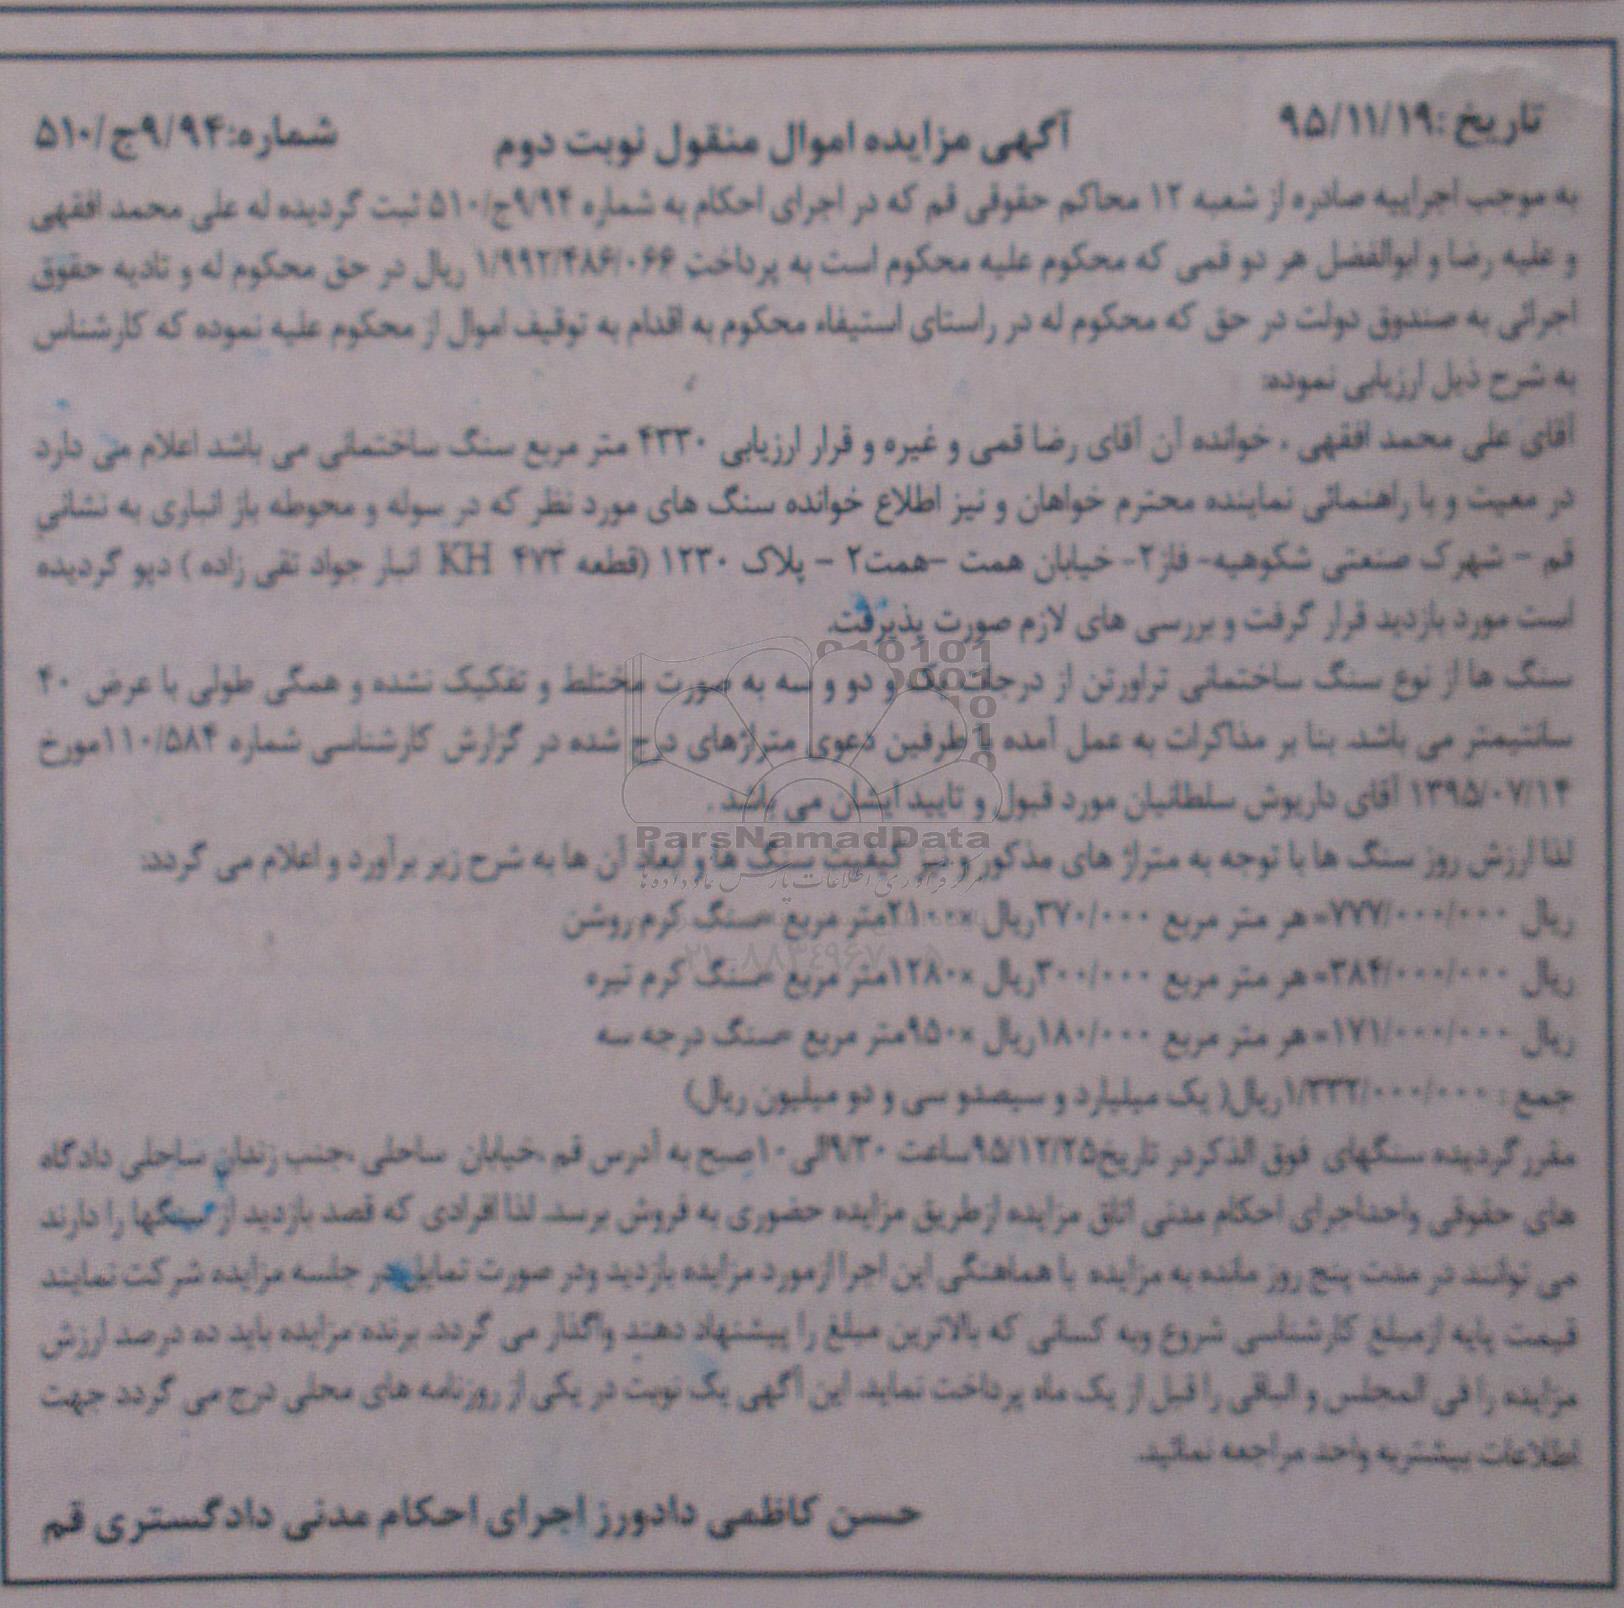 تاریخ :۹۵/۱۱/۱۹
آگهی مزایده اموال منقول نوبت دوم
شماره:۹/۹۴ج/۵۱۰
به موجب اجراییه صادره از شعبه ۱۲ محاکم حقوقی قم که در اجرای احکام به شماره ۹/۹۴ج/۵۱۰ ثبت گردیده له علی محمد افقهی
و علیه رضا و ابوالفضل هر دو قمی که محکوم علیه محکوم است به پرداخت ۱/۹۹۲/۴۸۶/۰۶۶ ریال در حق محکوم له و تادیه حقوق
اجرائی به صندوق دولت در حق که محکوم له در راستای استیفاء محکوم به اقدام به توقیف اموال از محکوم علیه نموده که کارشناس
به شرح ذیل ارزیابی نموده:
آقای علی محمد افقهی . خوانده آن آقای رضا قمی و غیره و قرار ارزیابی ۴۳۳۰ متر مربع سنگ ساختمانی می باشد اعلام می دارد
در معیت و با راهنمائی نماینده محترم خواهان و نیز اطلاع خوانده سنگ های مورد نظر که در سوله و محوطه باز انباری به نشانی
قم – شهرک صنعتی شکوهیه- فاز۲- خیابان همت –همت۲ – پلاک ۱۲۳۰ (قطعه ۴۷۳ KH انبار جواد تقی زاده ) دپو گردیده
است مورد بازدید قرار گرفت و بررسی های لازم صورت پذیرفت.
سنگ ها از نوع سنگ ساختمانی تراورتن از درجات یک و دو و سه به صورت مختلط و تفکیک نشده و همگی طولی با عرض ۴۰
سانتیمتر می باشد. بنا بر مذاکرات به عمل آمده با طرفین دعوی متراژهای درج شده در گزارش کارشناسی شماره ۱۱۰/۵۸۴مورخ
۱۳۹۵/۰۷/۱۴ آقای داریوش سلطانیان مورد قبول و تایید ایشان می باشد .
لذا ارزش روز سنگ ها با توجه به متراژ های مذکور و نیز کیفیت سنگ ها و ابعاد آن ها به شرح زیر برآورد و اعلام می گردد:
ریال ۷۷۷/۰۰۰/۰۰۰=هر متر مربع ۳۷۰/۰۰۰ریال ×۲۱۰۰متر مربع =سنگ کرم روشن
ریال ۳۸۴/۰۰۰/۰۰۰=هر متر مربع ۳۰۰/۰۰۰ریال ×۱۲۸۰متر مربع =سنگ کرم تیره
ریال ۱۷۱/۰۰۰/۰۰۰=هر متر مربع ۱۸۰/۰۰۰ریال ×۹۵۰متر مربع =سنگ درجه سه
جمع : ۱/۳۳۲/۰۰۰/۰۰۰ریال( یک میلیارد و سیصدو سی و دو میلیون ریال)
مقررگردیده سنگهای فوق الذکردر تاریخ۹۵/۱۲/۲۵ساعت ۹/۳۰الی۱۰صبح به آدرس قم ،خیابان ساحلی ،جنب زندان ساحلی دادگاه
های حقوقی واحداجرای احکام مدنی اتاق مزایده ازطریق مزایده حضوری به فروش برسد. لذا افرادی که قصد بازدید از سنگها را دارند
می توانند در مدت پنج روز مانده به مزایده با هماهنگی این اجرا ازمورد مزایده بازدید ودر صورت تمایل در جلسه مزایده شرکت نمایند
قیمت پایه ازمبلغ کارشناسی شروع وبه کسانی که بالاترین مبلغ را پیشنهاد دهند واگذار می گردد. برنده مزایده باید ده درصد ارزش
مزایده را فی المجلس و الباقی را قبل از یک ماه پرداخت نماید. این آگهی یک نوبت در یکی از روزنامه های محلی درج می گردد جهت
اطلاعات بیشتربه واحد مراجعه نمائید.
حسن کاظمی دادورز اجرای احکام مدنی دادگستری قم
ParsNamadData